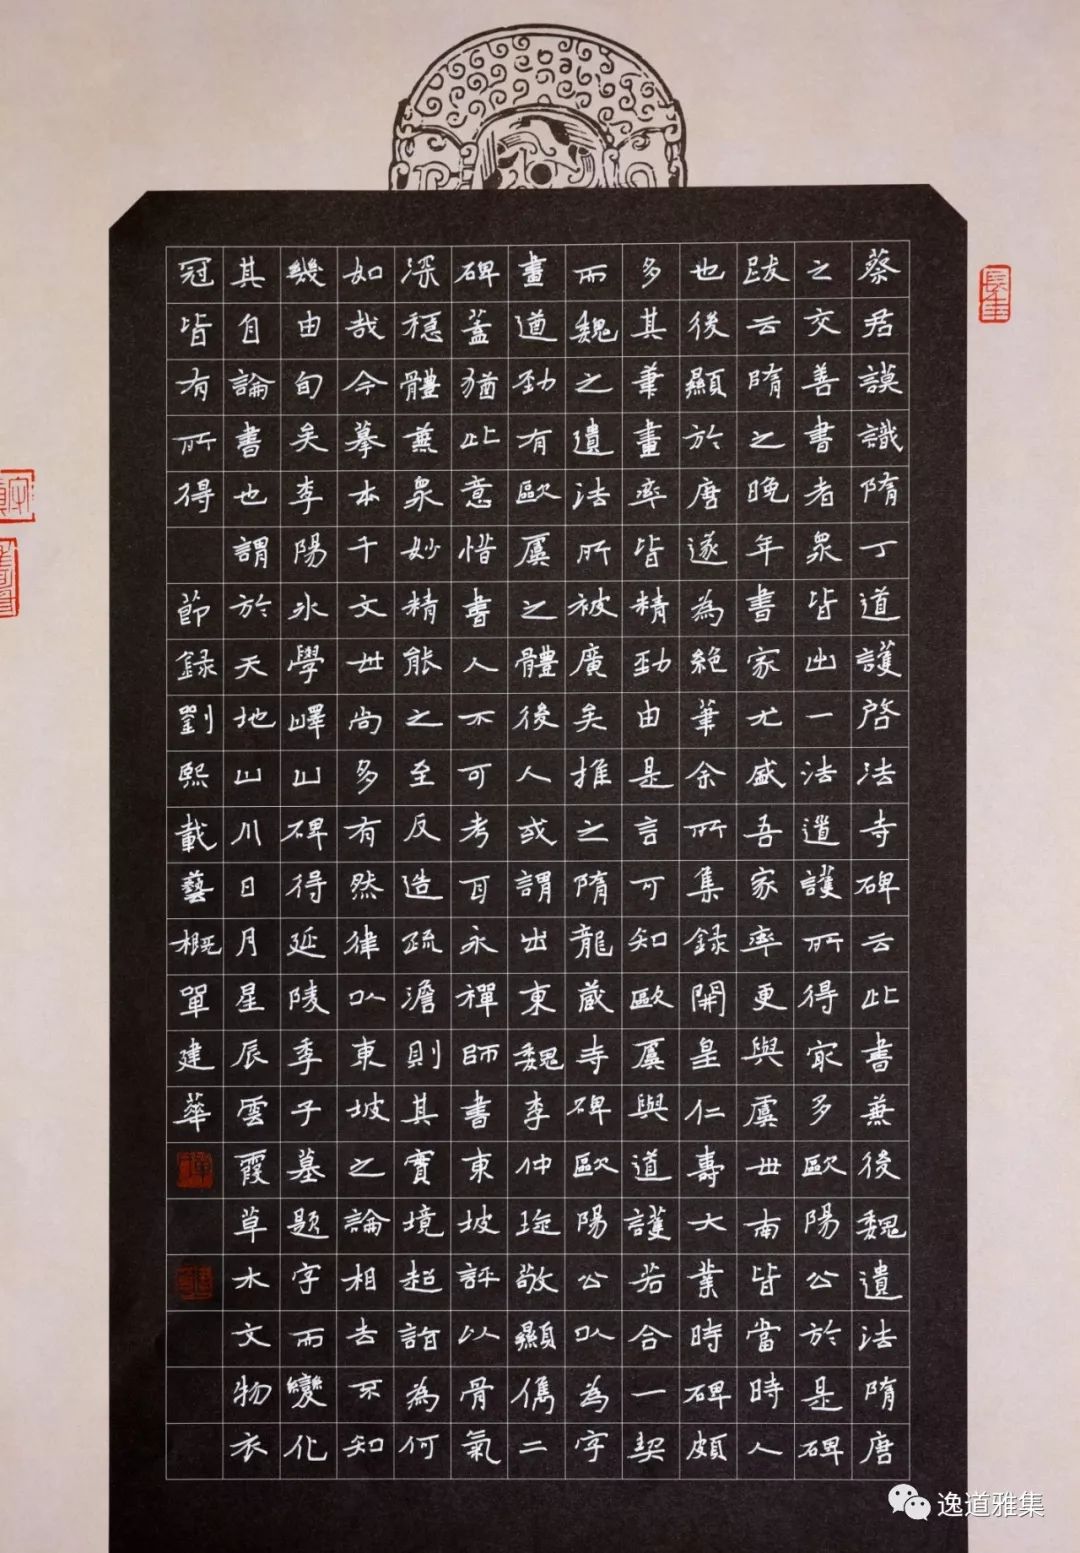 蔡君謨識隋丁道護啓法寺碑云此書兼後魏遺法隋唐
之交善書者衆皆出一法道護所得冣多歐陽公於是碑
跋云隋之晚年書家尤盛吾家率更與虞世南皆當時人
也後顯於唐遂為絕筆余所集録開皇仁壽大業時碑頗
多其筆畫率皆精勁由是言可知歐虞與道護若合一契
而魏之遺法所被廣矣推之隋龍蔵寺碑歐陽公以為字
畫遒勁有歐虞之體後人或謂出東魏李仲琁敬顯儁二
碑蓋猶此意惜書人不可考耳永禪師書東坡評以骨氣
深穩體兼衆妙精能之至反造疏澹則其實境超詣為何
如哉今摹本千文世尚多有然律以東坡之論相去不知
幾由旬矣李陽冰學嶧山碑得延陵季子墓題字而變化
其自論書也謂於天地山川日月星辰雲霞草木文物衣
冠皆有所得 節録劉熙載藝概單建華
逸道雅集